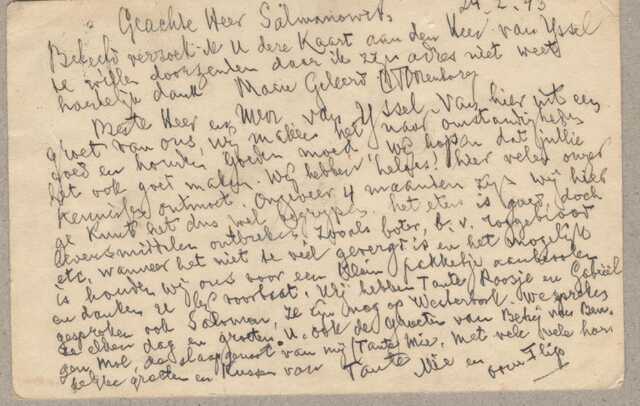 24-2-43
Geachte Heer Salmonowits
Beleefd verzoek ik U deze Kaart aan den Heer van Yssel
te willen doorzenden daar ik z'n adres niet weet
hartelijk dank Marie
Beste Heer en Mevr. van Yssel. Van hier uit een
groet van ons, wij maken het naar omstandigheden
goed en houden goeden moed. Wij hopen dat jullie
het ook goed maken. Wij hebben helaas! hier velen onzer
kennisse ontmoet. Ongeveer 4 maanden zijn wij hier
ge kunt het dus wel begrijpen. het eten is goed, doch
levensmiddelen ontbreken, zooals boter, b.v. roggebrood
etc, wanneer het niet te veel gevergd is en het mogelijk
is houden wij ons voor een klein pakketje aanbevolen
en danken U bij voorbaat. Wij hebben Tante Roosje en Gabriël
gesproken ook Salomon, ze zijn nog op Westerbork. We spreken
ze elken dag en groeten U. ook de groeten van
slaapgenoot van mij Tante Mie. Met vele vele har
telijke groeten en Kussen van Tante Mie en
oom Flip